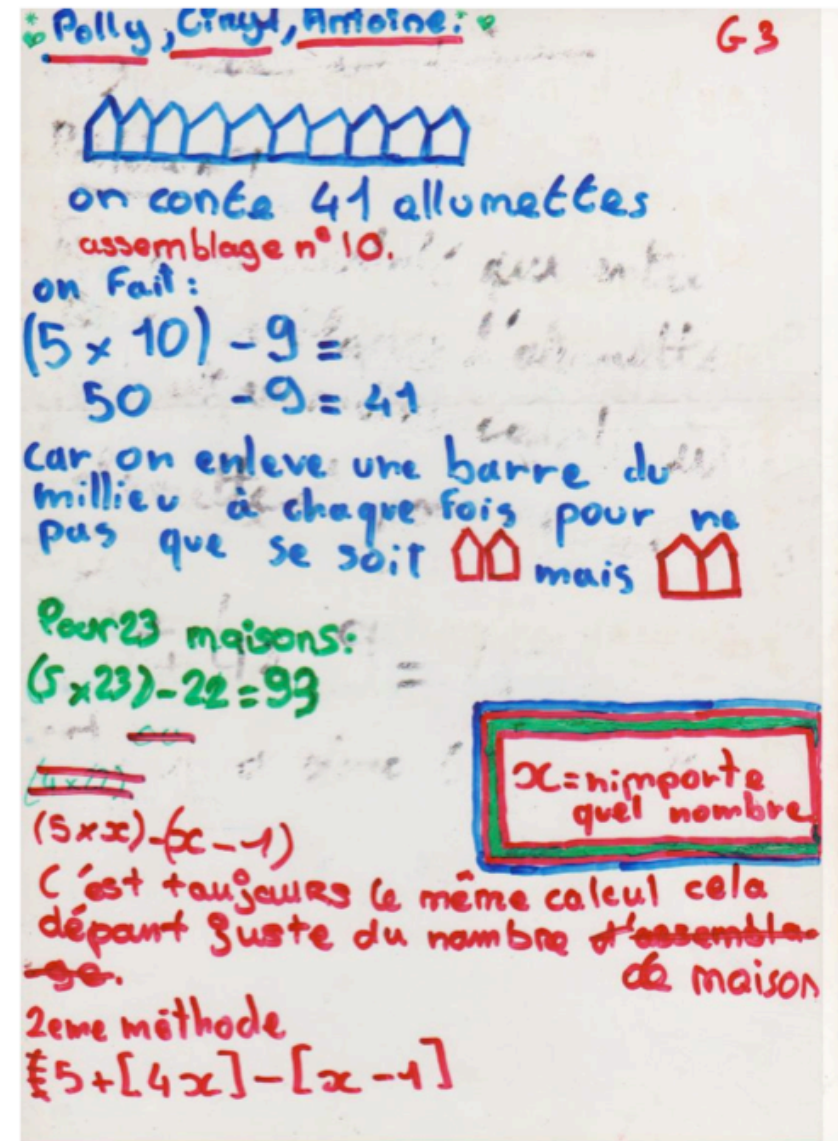 Polly, Ciryl, Antoine:
G3
on conte 41 allumettes
assemblage n° 10.
on Fait:
(5 x 10) - 9 =
50 - 9 = 41
car on enleve une barre du
millieu à chaque fois pour ne
pas que se soit mais
Pour 23 maisons:
(5 x 23) - 22 = 93
=
x = nimporte
quel nombre
(5 x x) - (x - 1)
C'est toujours le même calcul cela
dépant juste du nombre d'assembla-
ge.
de maison
2eme méthode
5 + [4x] - [x - 1]